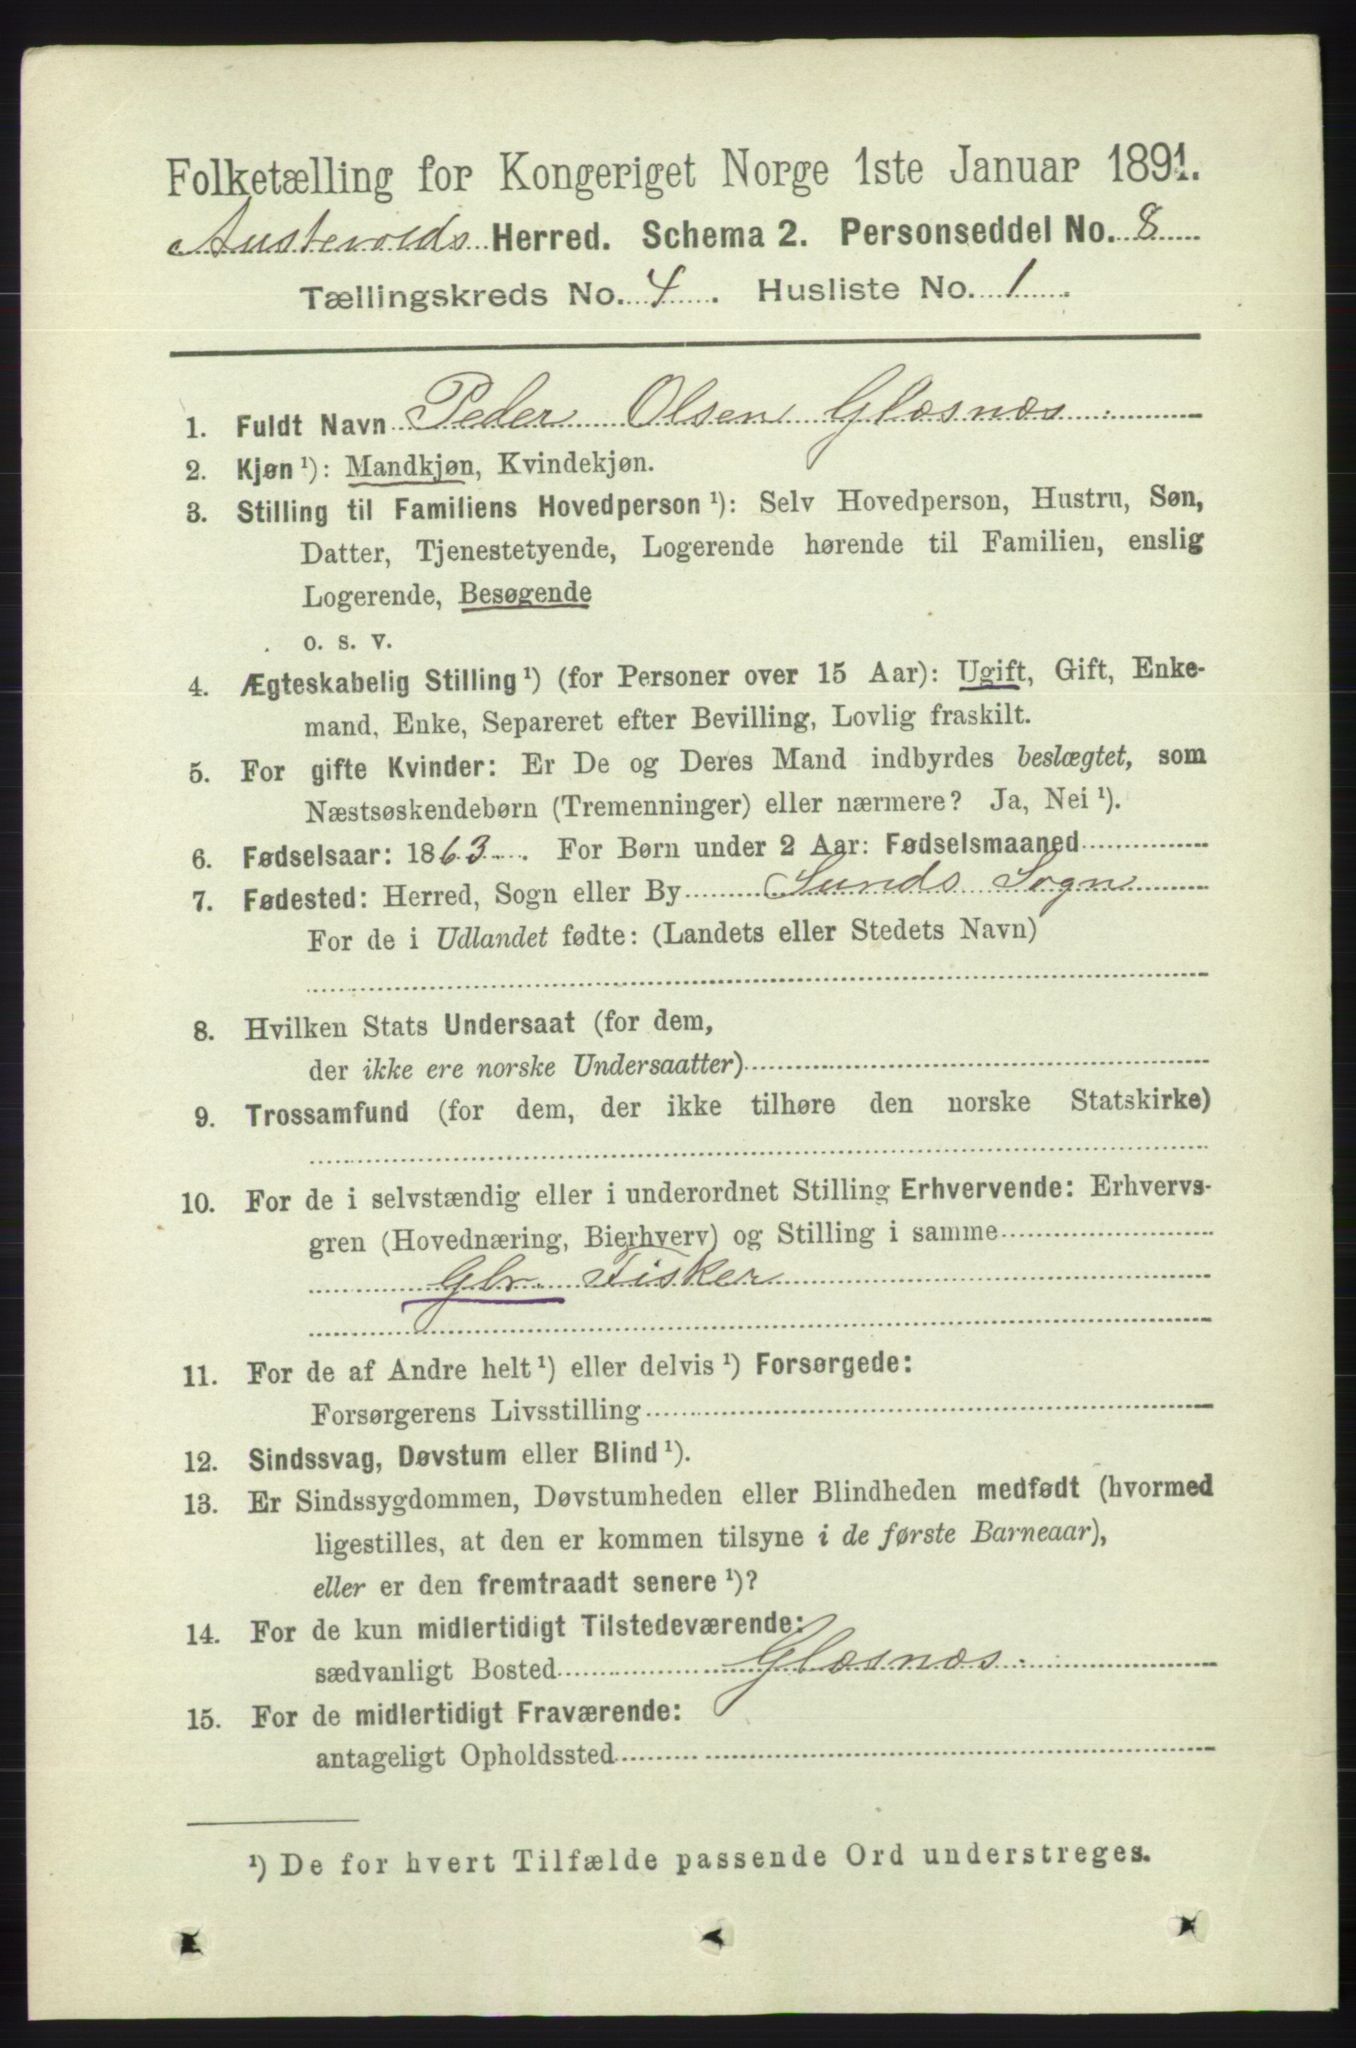 Folketælling for Kongeriget Norge 1ste Januar 1891.
Austevolds Herred. Schema 2. Personseddel No. 8
Tællingskreds No. 4. Husliste No. 1.
1. Fuldt Navn Peder Olsen Glæsnæs
2. Kjøn ¹): Mandkjøn, Kvindekjøn.
3. Stilling til Familiens Hovedperson ¹): Selv Hovedperson, Hustru, Søn,
Datter, Tjenestetyende, Logerende hørende til Familien, enslig
Logerende, Besøgende
o. s. v.
4. Ægteskabelig Stilling ¹) (for Personer over 15 Aar): Ugift, Gift, Enke-
mand, Enke, Separeret efter Bevilling, Lovlig fraskilt.
5. For gifte Kvinder: Er De og Deres Mand indbyrdes beslægtet, som
Næstsøskendebørn (Tremenninger) eller nærmere? Ja, Nei ¹).
6. Fødselsaar: 1863. For Børn under 2 Aar: Fødselsmaaned
7. Fødested: Herred, Sogn eller By Sunds Sogn
For de i Udlandet fødte: (Landets eller Stedets Navn)
8. Hvilken Stats Undersaat (for dem,
der ikke ere norske Undersaatter)
9. Trossamfund (for dem, der ikke tilhøre den norske Statskirke)
10. For de i selvstændig eller i underordnet Stilling Erhvervende: Erhvervs-
gren (Hovednæring, Bierhverv) og Stilling i samme
Gbr. Fisker
11. For de af Andre helt ¹) eller delvis ¹) Forsørgede:
Forsørgerens Livsstilling
12. Sindssvag, Døvstum eller Blind ¹).
13. Er Sindssygdommen, Døvstumheden eller Blindheden medfødt (hvormed
ligestilles, at den er kommen tilsyne i de første Barneaar),
eller er den fremtraadt senere ¹)?
14. For de kun midlertidigt Tilstedeværende:
sædvanligt Bosted Glæsnæs
15. For de midlertidigt Fraværende:
antageligt Opholdssted
¹) De for hvert Tilfælde passende Ord understreges.